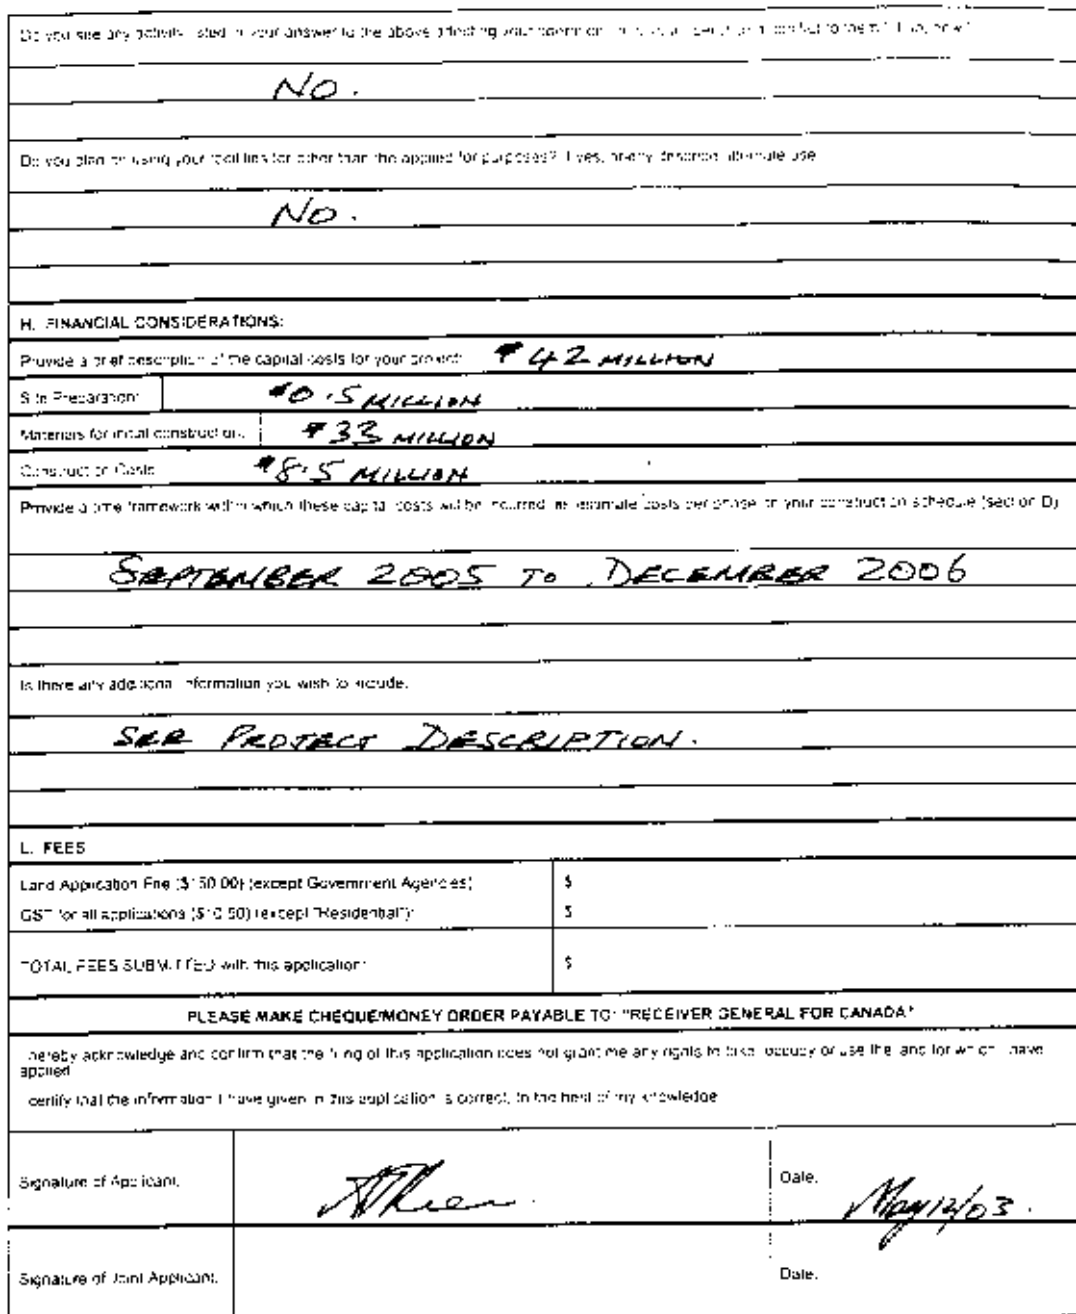 Do you see any activity listed in your answer to the above affecting your operation
NO.
Do you plan on using your facilities for other than the applied for purposes? If yes, briefly describe alternate use
NO.
H. FINANCIAL CONSIDERATIONS:
Provide a brief description of the capital costs for your project: $42 MILLION
Site Preparation: $0.5 MILLION
Materials for initial construction: $33 MILLION
Construction Costs $8.5 MILLION
Provide a time framework within which these capital costs will be incurred, ie. estimate costs per phase in your construction schedule (section D)
SEPTEMBER 2005 TO DECEMBER 2006
Is there any additional information you wish to include.
SEE PROJECT DESCRIPTION.
L. FEES
Land Application Fee ($150.00) (except Government Agencies) $
GST for all applications ($10.50) (except "Residential"): $
TOTAL FEES SUBMITTED with this application: $
PLEASE MAKE CHEQUE/MONEY ORDER PAYABLE TO: "RECEIVER GENERAL FOR CANADA"
I hereby acknowledge and confirm that the filing of this application does not grant me any rights to take, occupy or use the land for which I have
applied
I certify that the information I have given in this application is correct, to the best of my knowledge
Signature of Applicant. Date. May 12/03.
Signature of Joint Applicant. Date.